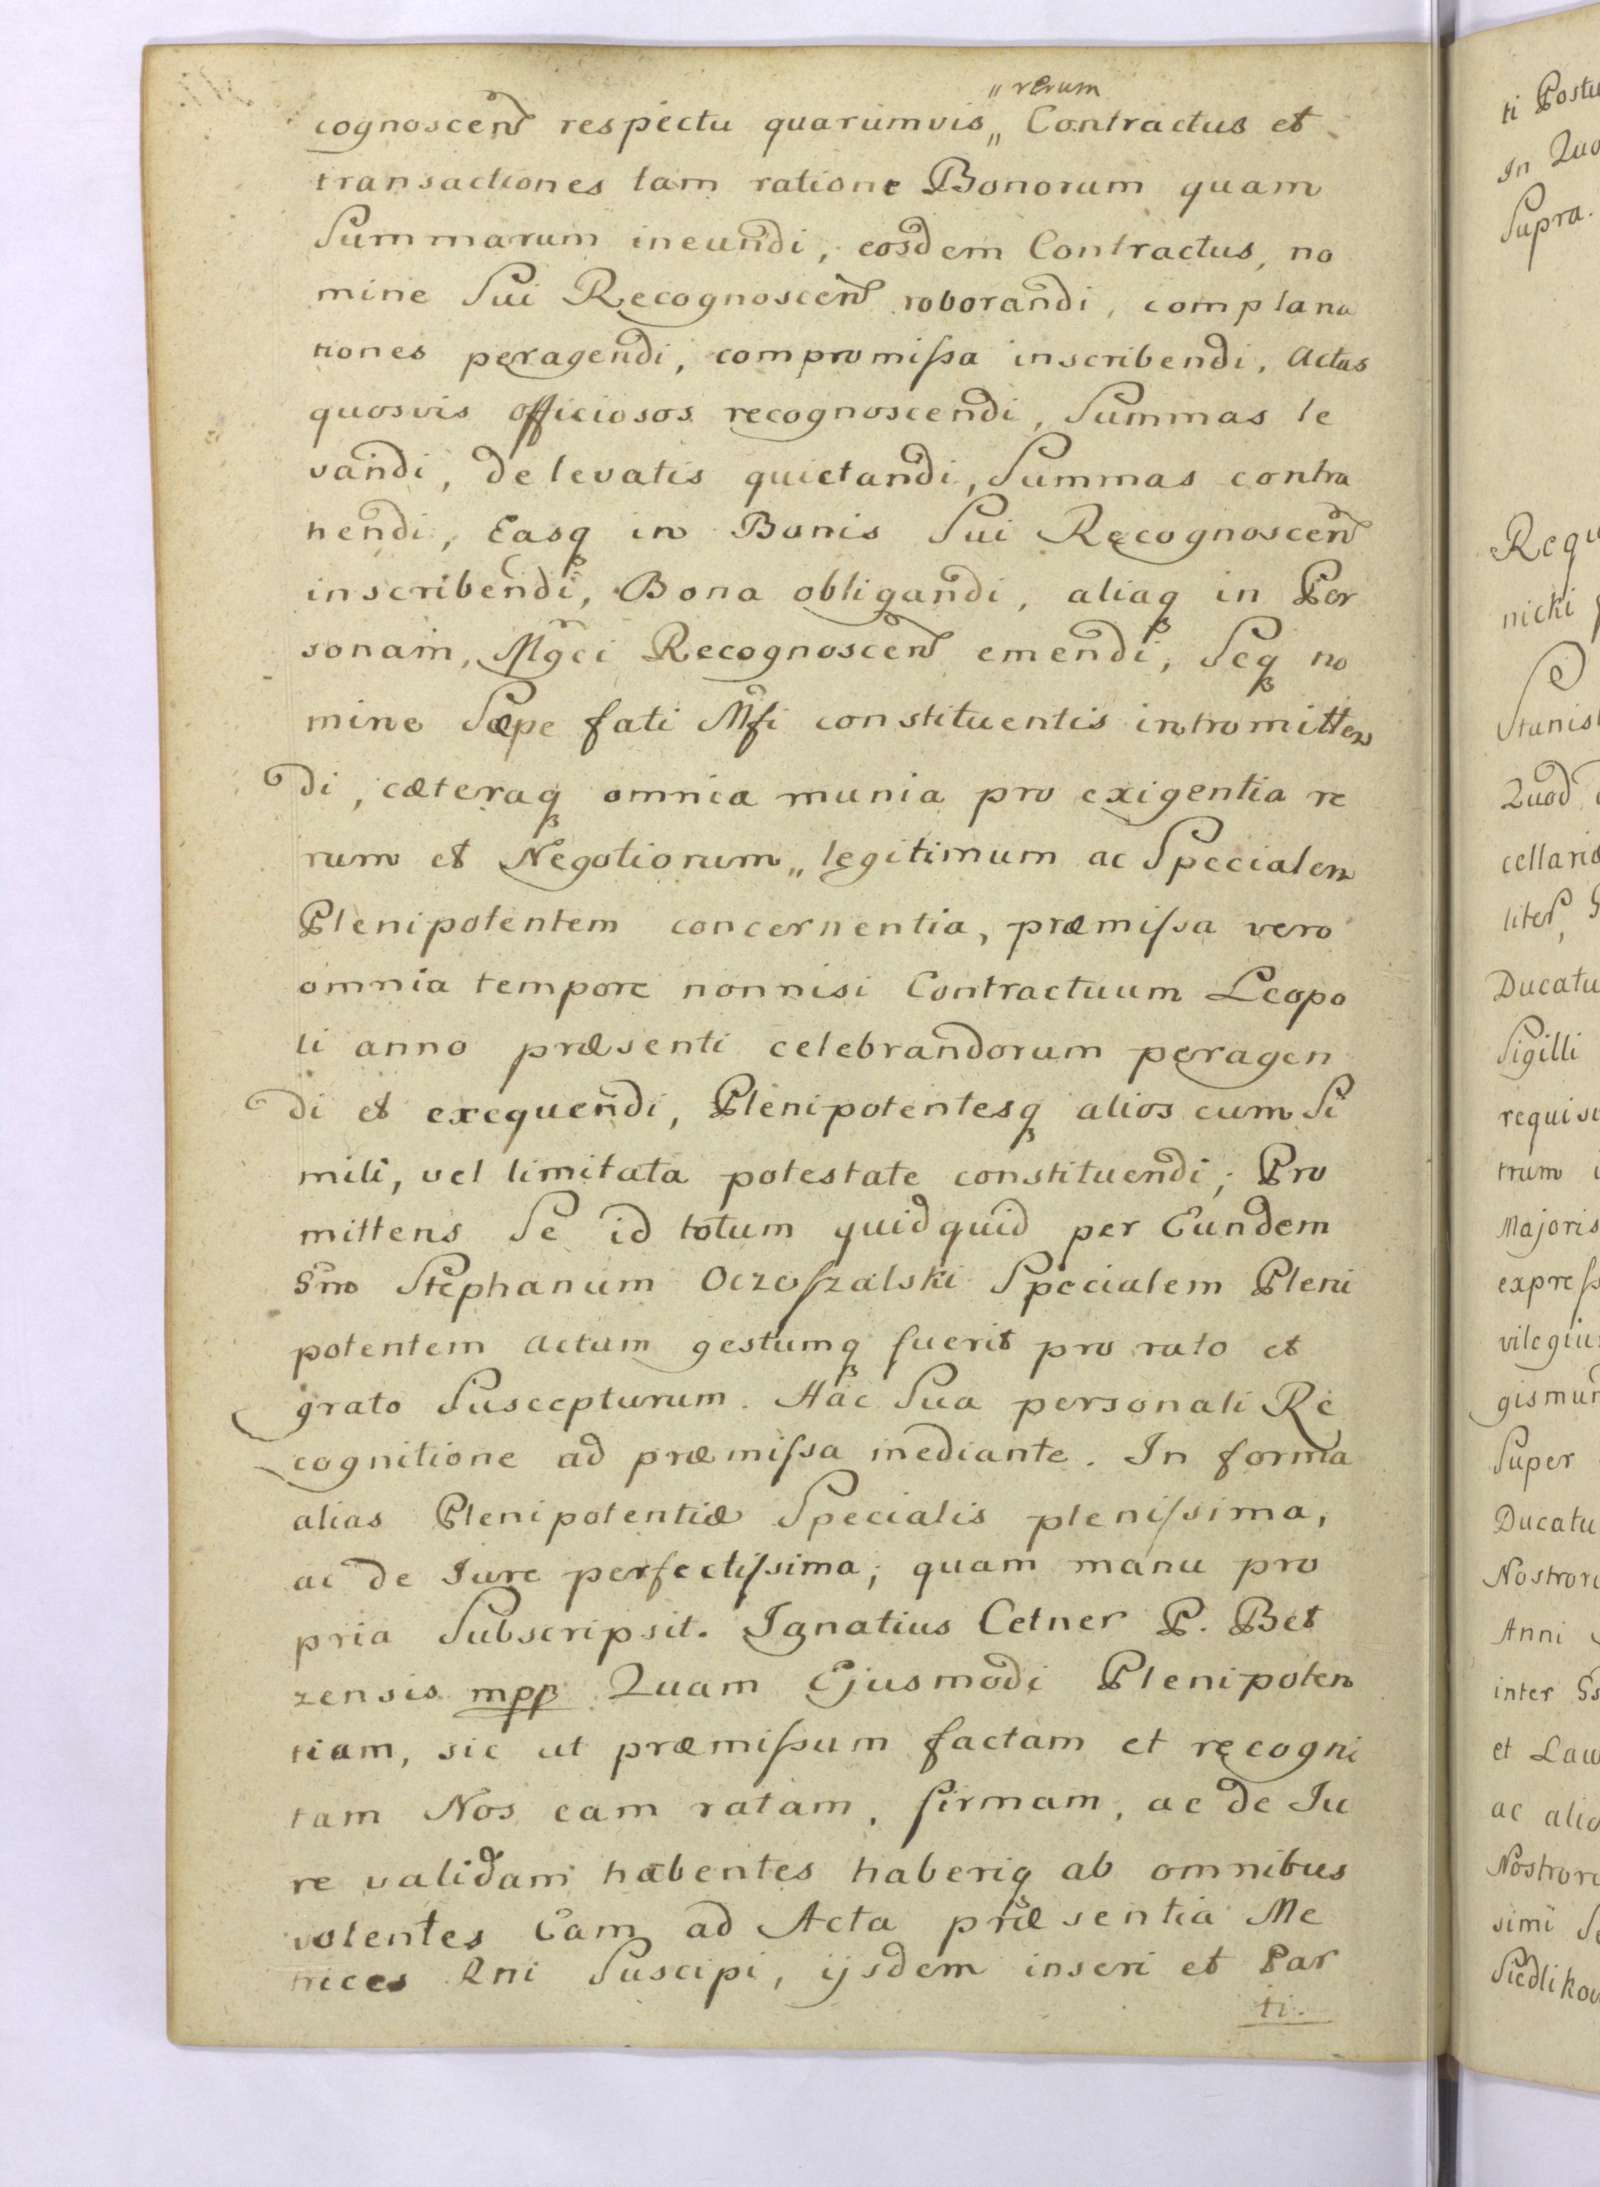 „ rerum
cognoscen respectu quarumvis „ Contractus et
transactiones tam ratione Bonorum quam
Summarum ineundi, eosdem Contractus, no
mine Sui Recognoscen roborandi, complana
tiones peragendi, compromiſsa inscribendi, Actus
quosvis officiosos recognoscendi, Summas le
vandi, de levatis quietandi, Summas contra
hendi, Easq in Bonis Sui Recognoscen
inscribendi, Bona obligandi, aliaq in Per
sonam, Mgci Recognoscen emendi, Seq no
mine Sæpe fati Mfi constituentis intromitten
di, cæteraq omnia munia pro exigentia re
rum et Negotiorum „ legitimum ac Specialem
Plenipotentem concernentia, præmiſsa vero
omnia tempore nonnisi Contractuum Leopo
li anno præsenti celebrandorum peragen
di et exequendi, Plenipotentesq alios cum Si
mili, vel limitata potestate constituendi; Pro
mittens Se id totum quidquid per Eundem
Gnō Stephanum Oczoſzalski Specialem Pleni
potentem actum gestumq fuerit pro rato et
grato Suscepturum. Hac Sua personali Re
cognitione ad præmiſsa mediante. In forma
alias Plenipotentiæ Specialis pleniſsima,
ac de Iure perfectiſsima; quam manu pro
pria Subscripsit. Ignatius Cetner P. Bet
zensis mpp Quam Ejusmodi Plenipoten
tiam, sic ut præmiſsum factam et recogni
tam Nos eam ratam, firmam, ac de Iu
re validam habentes haberiq ab omnibus
volentes Eam ad Acta præsentia Me
trices Rni Suscipi, ijsdem inseri et Par
ti.
ti Postu
In Quo
Supra.
Requ
nicki
Stanisl
Quod
cellaria
liter,
Ducatu
Sigilli
requisi
trum
Majoris
expreſs
vilegiu
gismun
Super
Ducatu
Nostroru
Anni
inter
et Law
ac alio
Nostroru
simi
Siedlikow